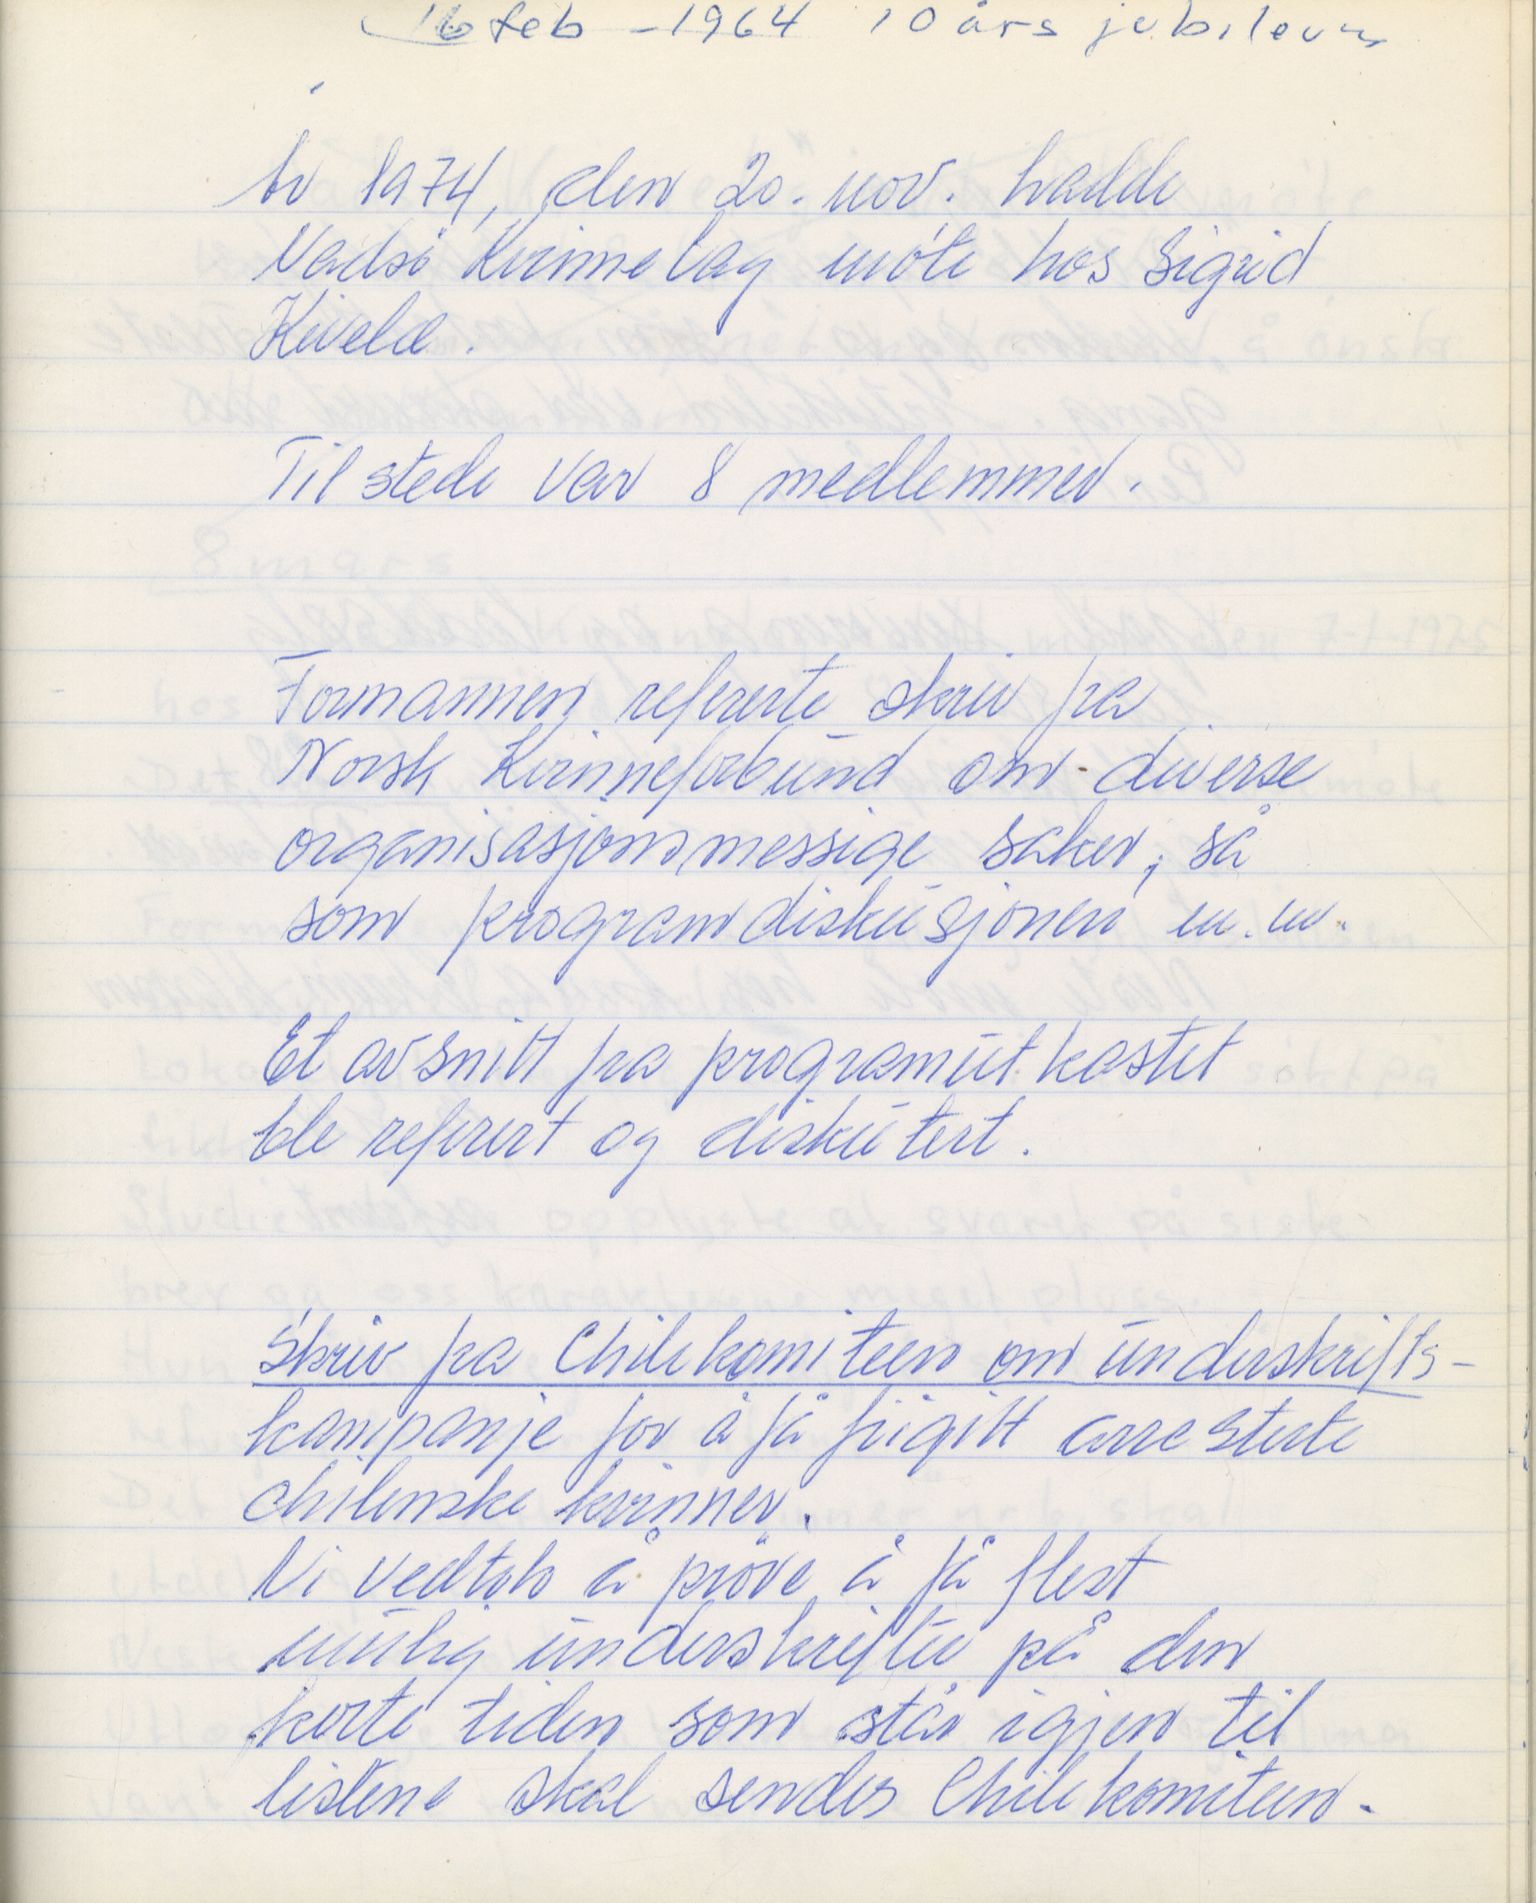 16 feb - 1964 10 års jubileum
År 1974, den 20. nov. hadde
Vadsø Kvinnelag møte hos Sigrid
Kivelæ.
Til stede var 8 medlemmer.
Formannen refererte skriv fra
Norsk Kvinneforbund om diverse
organisasjonsmessige saker, så
som programdiskusjonen m.m.
Et avsnitt fra programutkastet
ble referert og diskutert.
Skriv fra Chilekomiteen om underskrifts-
kampanje for å få frigitt arresterte
chilenske kvinner.
Vi vedtok å prøve å få flest
mulig underskrifter på den
korte tiden som står igjen til
listene skal sendes Chilekomiteen.